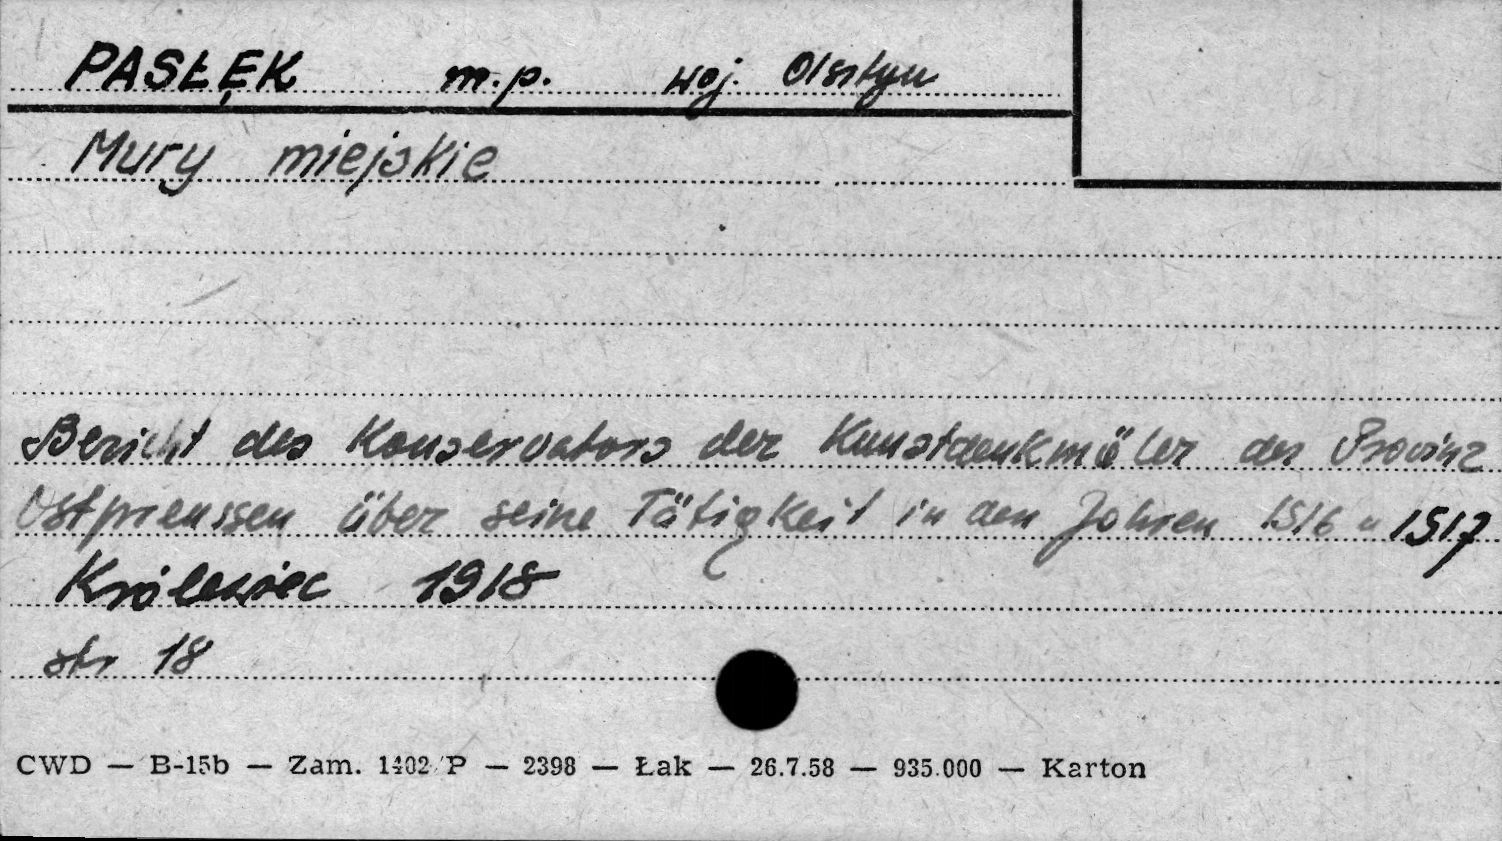 PASŁĘK m.p. woj. Olsztyn
Mury miejskie
Bericht des Konservators der Kunstdenkmäler der Provinz
Ostpreussen über seine Tätigkeit in den Jahren 1916 u 1917
Królewiec 1918
str 18
CWD — B-15b — Zam. 1402/P — 2398 — Łak — 26.7.58 — 935.000 — Karton